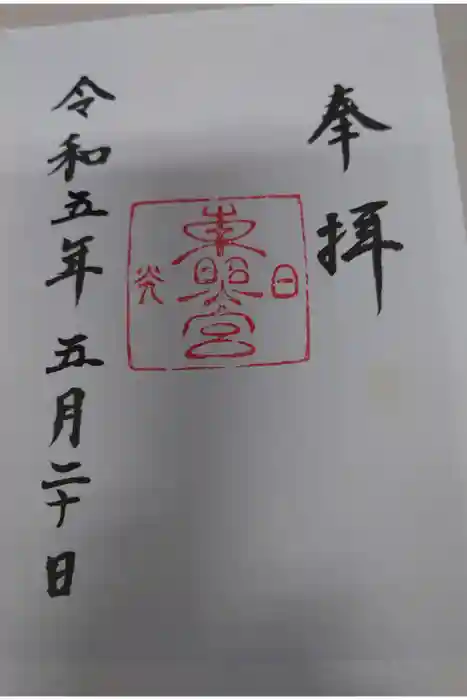 奉拝
日
東照宮
光
令和五年五月二十日